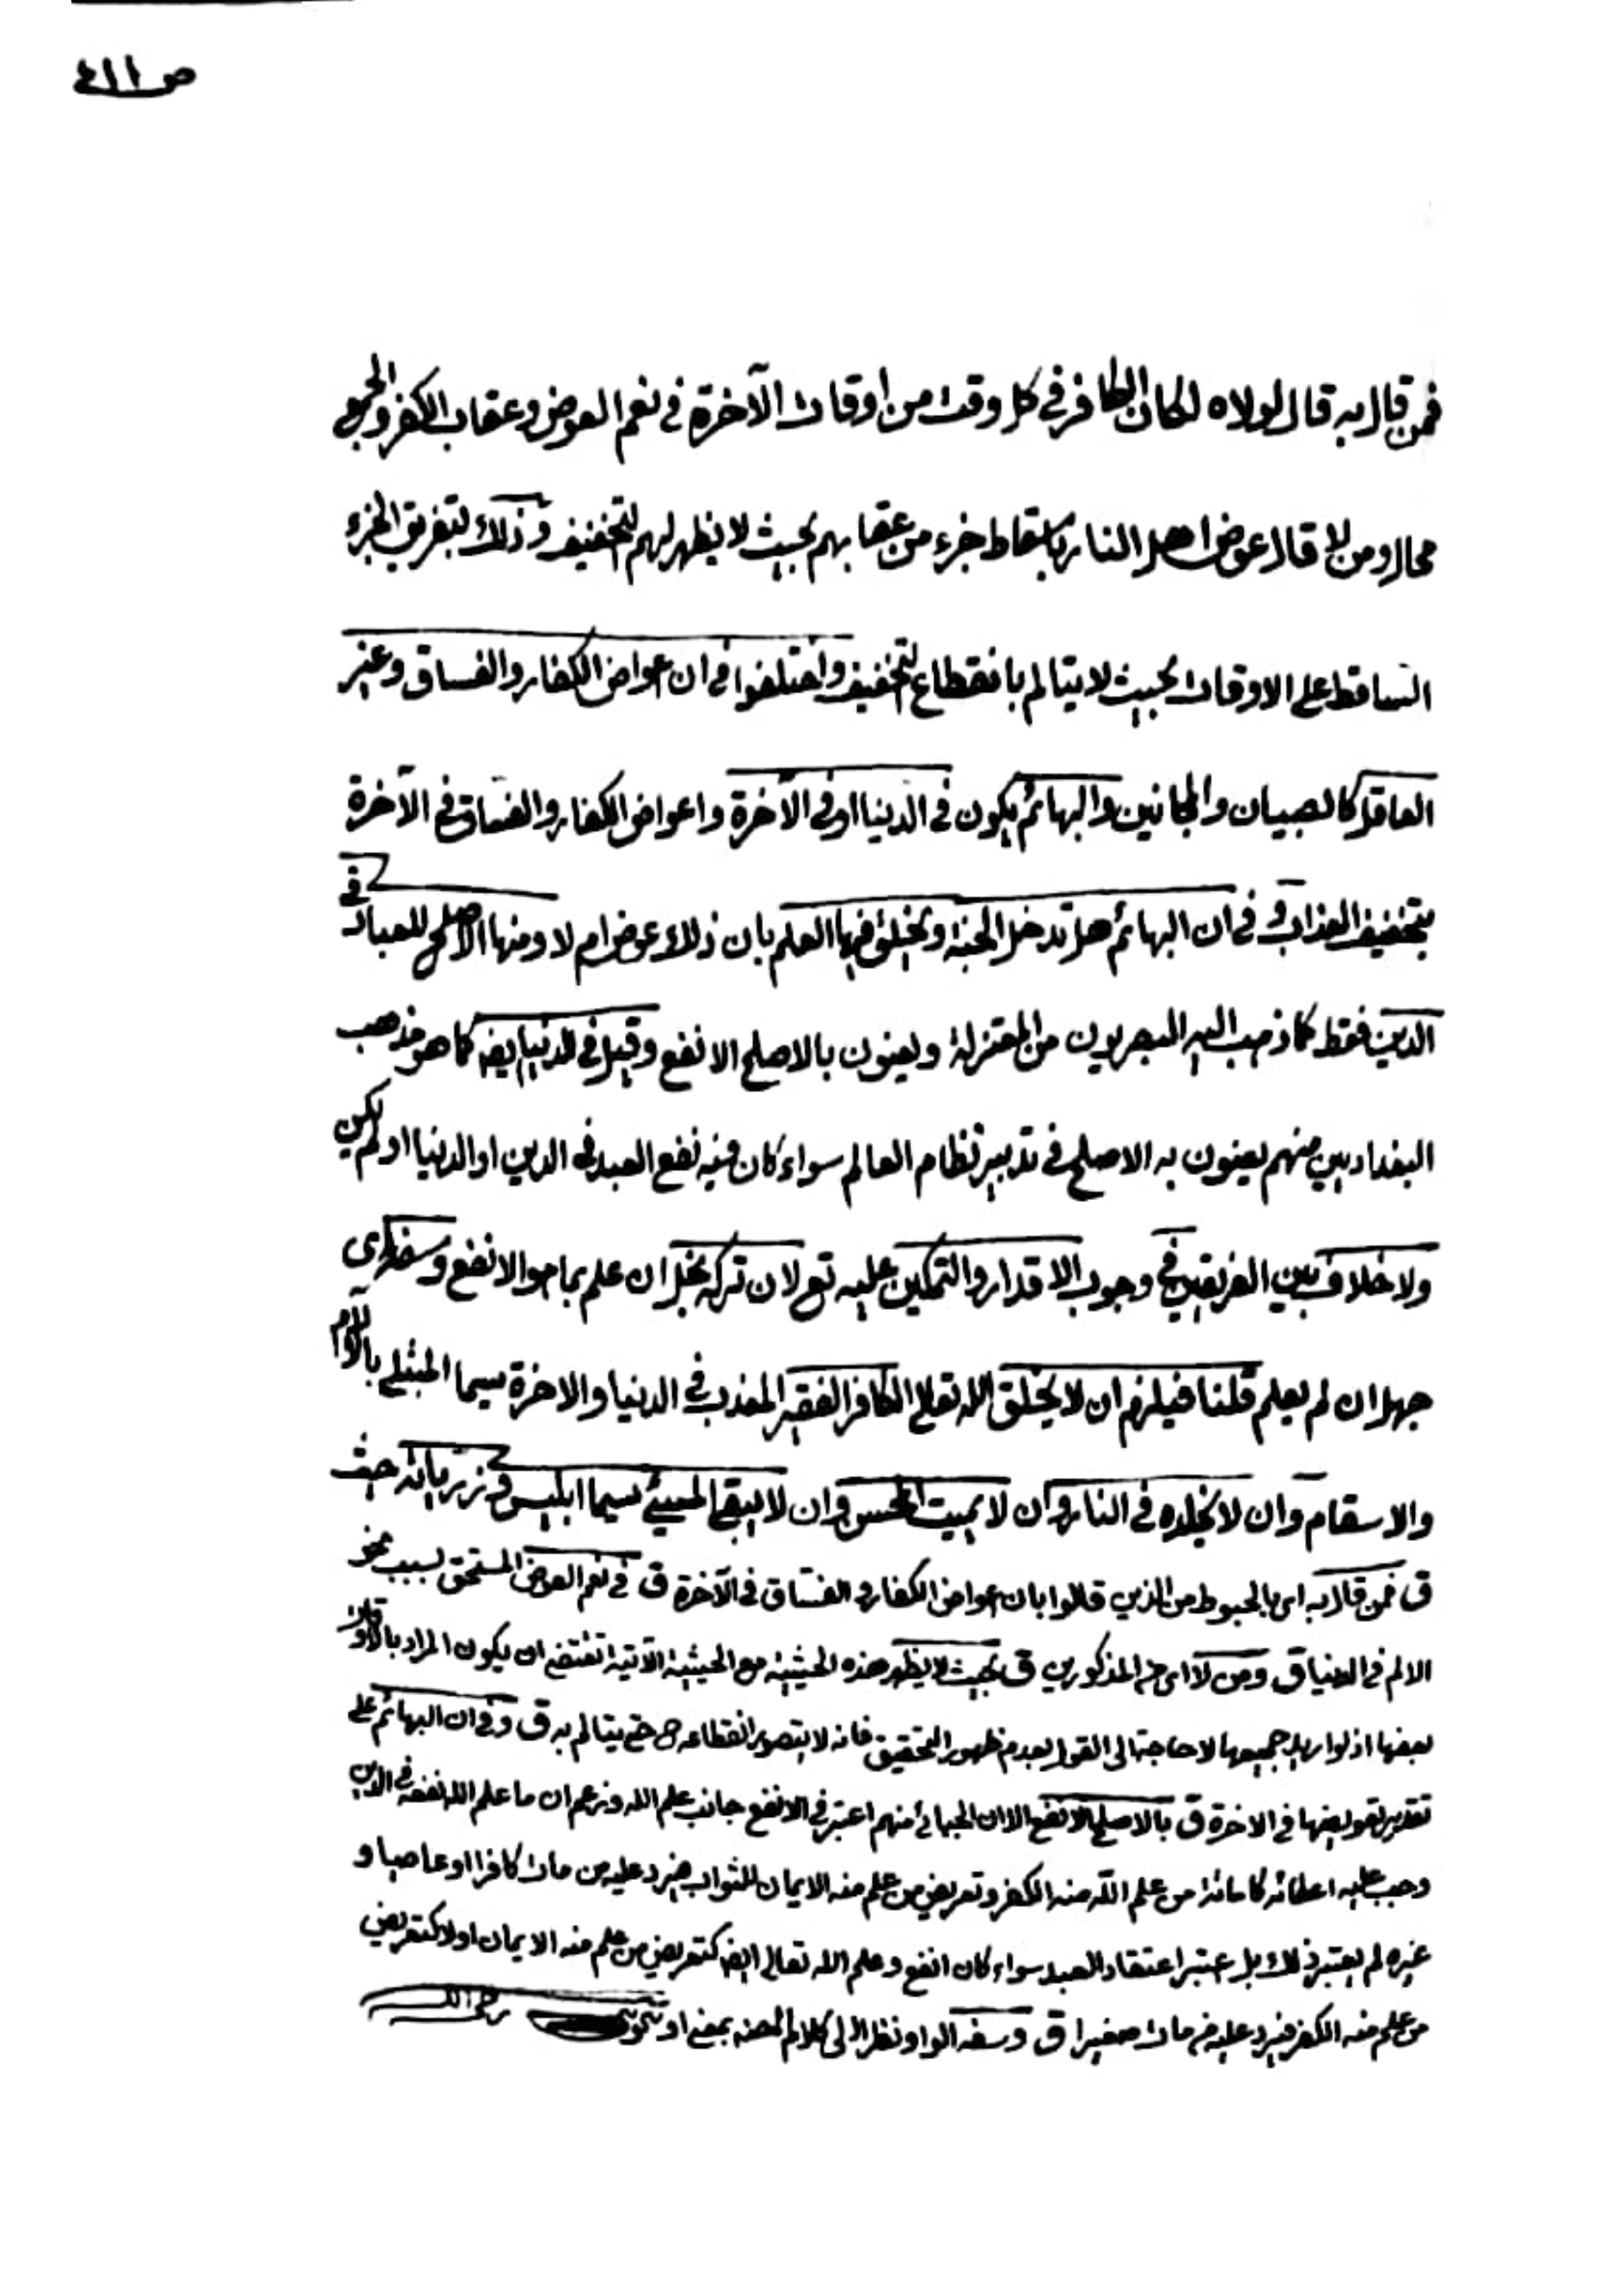 ص ٤١١
فمن قال به قال لولاه لكان الكافر في كل وقت من اوقات الآخرة في نعم العوض وعقاب الكفر والجمع
محال ومن لا قال عوض اهل النار باسقاط جزء من عقابهم بحيث لا يظهر لهم التخفيف وذلك لتفريق الجزء
الساقط على الاوقات بحيث لا يتالم بانقطاع التخفيف واختلفوا في ان عواض الكفار والفساق وغير
العاقل كالصبيان والمجانين والبهائم يكون في الدنيا او في الآخرة واعواض الكفار والفساق في الآخرة
بتخفيف العذاب وفي ان البهائم هل تدخل الجنة ويخلق فيها العلم بان ذلك عوض ام لا ومنها الاصلح للعباد في
الدين فقط كما ذهب اليه البصريون من المعتزلة ويعنون بالاصلح الانفع وقيل في الدنيا ايضا كما هو مذهب
البغداديين منهم يعنون به الاصلح في تدبير نظام العالم سواء كان فيه نفع العبد في الدين او الدنيا او لم يكن
ولا خلاف بين الفريقين في وجوب الاقدار والتمكين عليه تع لان تركه بخل ان علم بما هو الانفع وسفه اى
جهل ان لم يعلم قلنا فيلزم ان لا يخلق الله تعالى الكافر الفقير المعذب في الدنيا والاخرة سيما المبتلى بالآلام
والاسقام وان لا يخلده في النار وان لا يميت المحسن وان لا يبقي المسيئ سيما ابليس وذرياته حيث
ق فمن قال به اى بالحبوط من الذين قالوا بان عواض الكفار والفساق في الآخرة ق في نعم العوض المستحق بسبب نحو
الالم في الدنيا ق ومن لا اى من المذكورين ق بحيث لا يظهر هذه الحيثية مع الحيثية الآتية تقتضي ان يكون المراد بالاوقات
بعضها اذ لو اريد جميعها لا حاجة الى القول بعدم ظهور التخفيف فانه لا يتصور انقطاعه ح حتى يتالم به ق وفي ان البهائم على
تقدير تعويضها في الاخرة ق بالاصلح الانفع الا ان الجبائي منهم اعتبر في الانفع جانب علم الله وزعم ان ما علم الله نفعه في الدين
وجب عليه اعطائه كاماتة من علم الله منه الكفر وتعريض من علم منه الايمان للثواب فيرد عليه من مات كافرا او عاصيا و
غيره لم يعتبر ذلك بل اعتبر اعتقاد العبد سواء كان انفع وعلم الله تعالى ايضا كتعريض من علم منه الايمان او لا كتعريض
من علم منه الكفر فيرد عليه من مات صغيرا ق وسفه الواو نظرا الى كلام المصنف بمعنى او